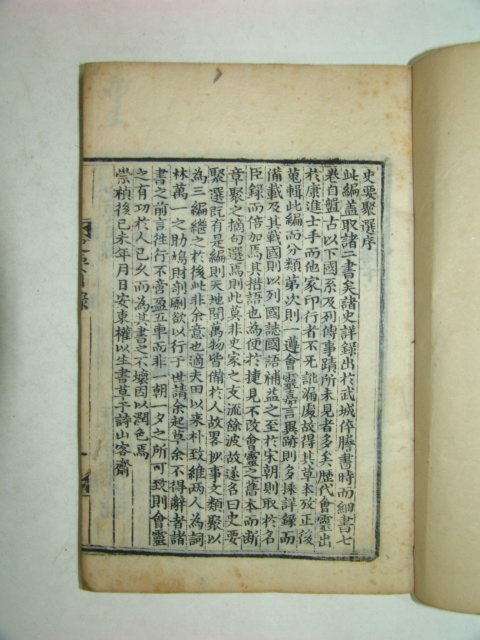 史要聚選序
此編盖取諸二書矣諸史詳錄出於武城倅謄書時而細書七
卷自盤古以下國系及列傳事蹟所未見者多矣歷代會靈出
於康進士手而他家印行者不死訛漏處故得其草本攷正後
蒐輯此編而分類第次則一遵會靈嘉言異跡則多採詳錄而
備載及其戰國則以列國誌國語補益之至於宋朝則取於名
臣錄而倍加焉其措語也為便於捷見不改會靈之舊本而斷
章聚之摘句選焉則此莫非史家之支流餘波故遂名曰史要
聚選旣有是編則天地間萬物皆備於人故畧抄事文類聚以
為三編継之於後此非余意也適夫田以來朴致維兩人為詞
林萬一之助鳩財剞劂欲以行于世請余起草余不得辭者諸
書之前言徃行不啻盈五車而非一朝一夕之所可致則會靈
之有功於人已久而為其書之不壞因以潤色焉
崇禎後己未年月日安東權以生書草于詩山客齋